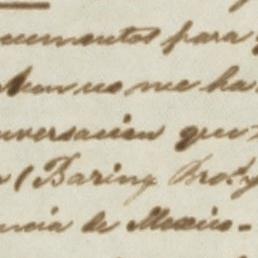 cumentos para
no me ha
nversacion que
(Baring Bro.s y
ncia de Mexico-